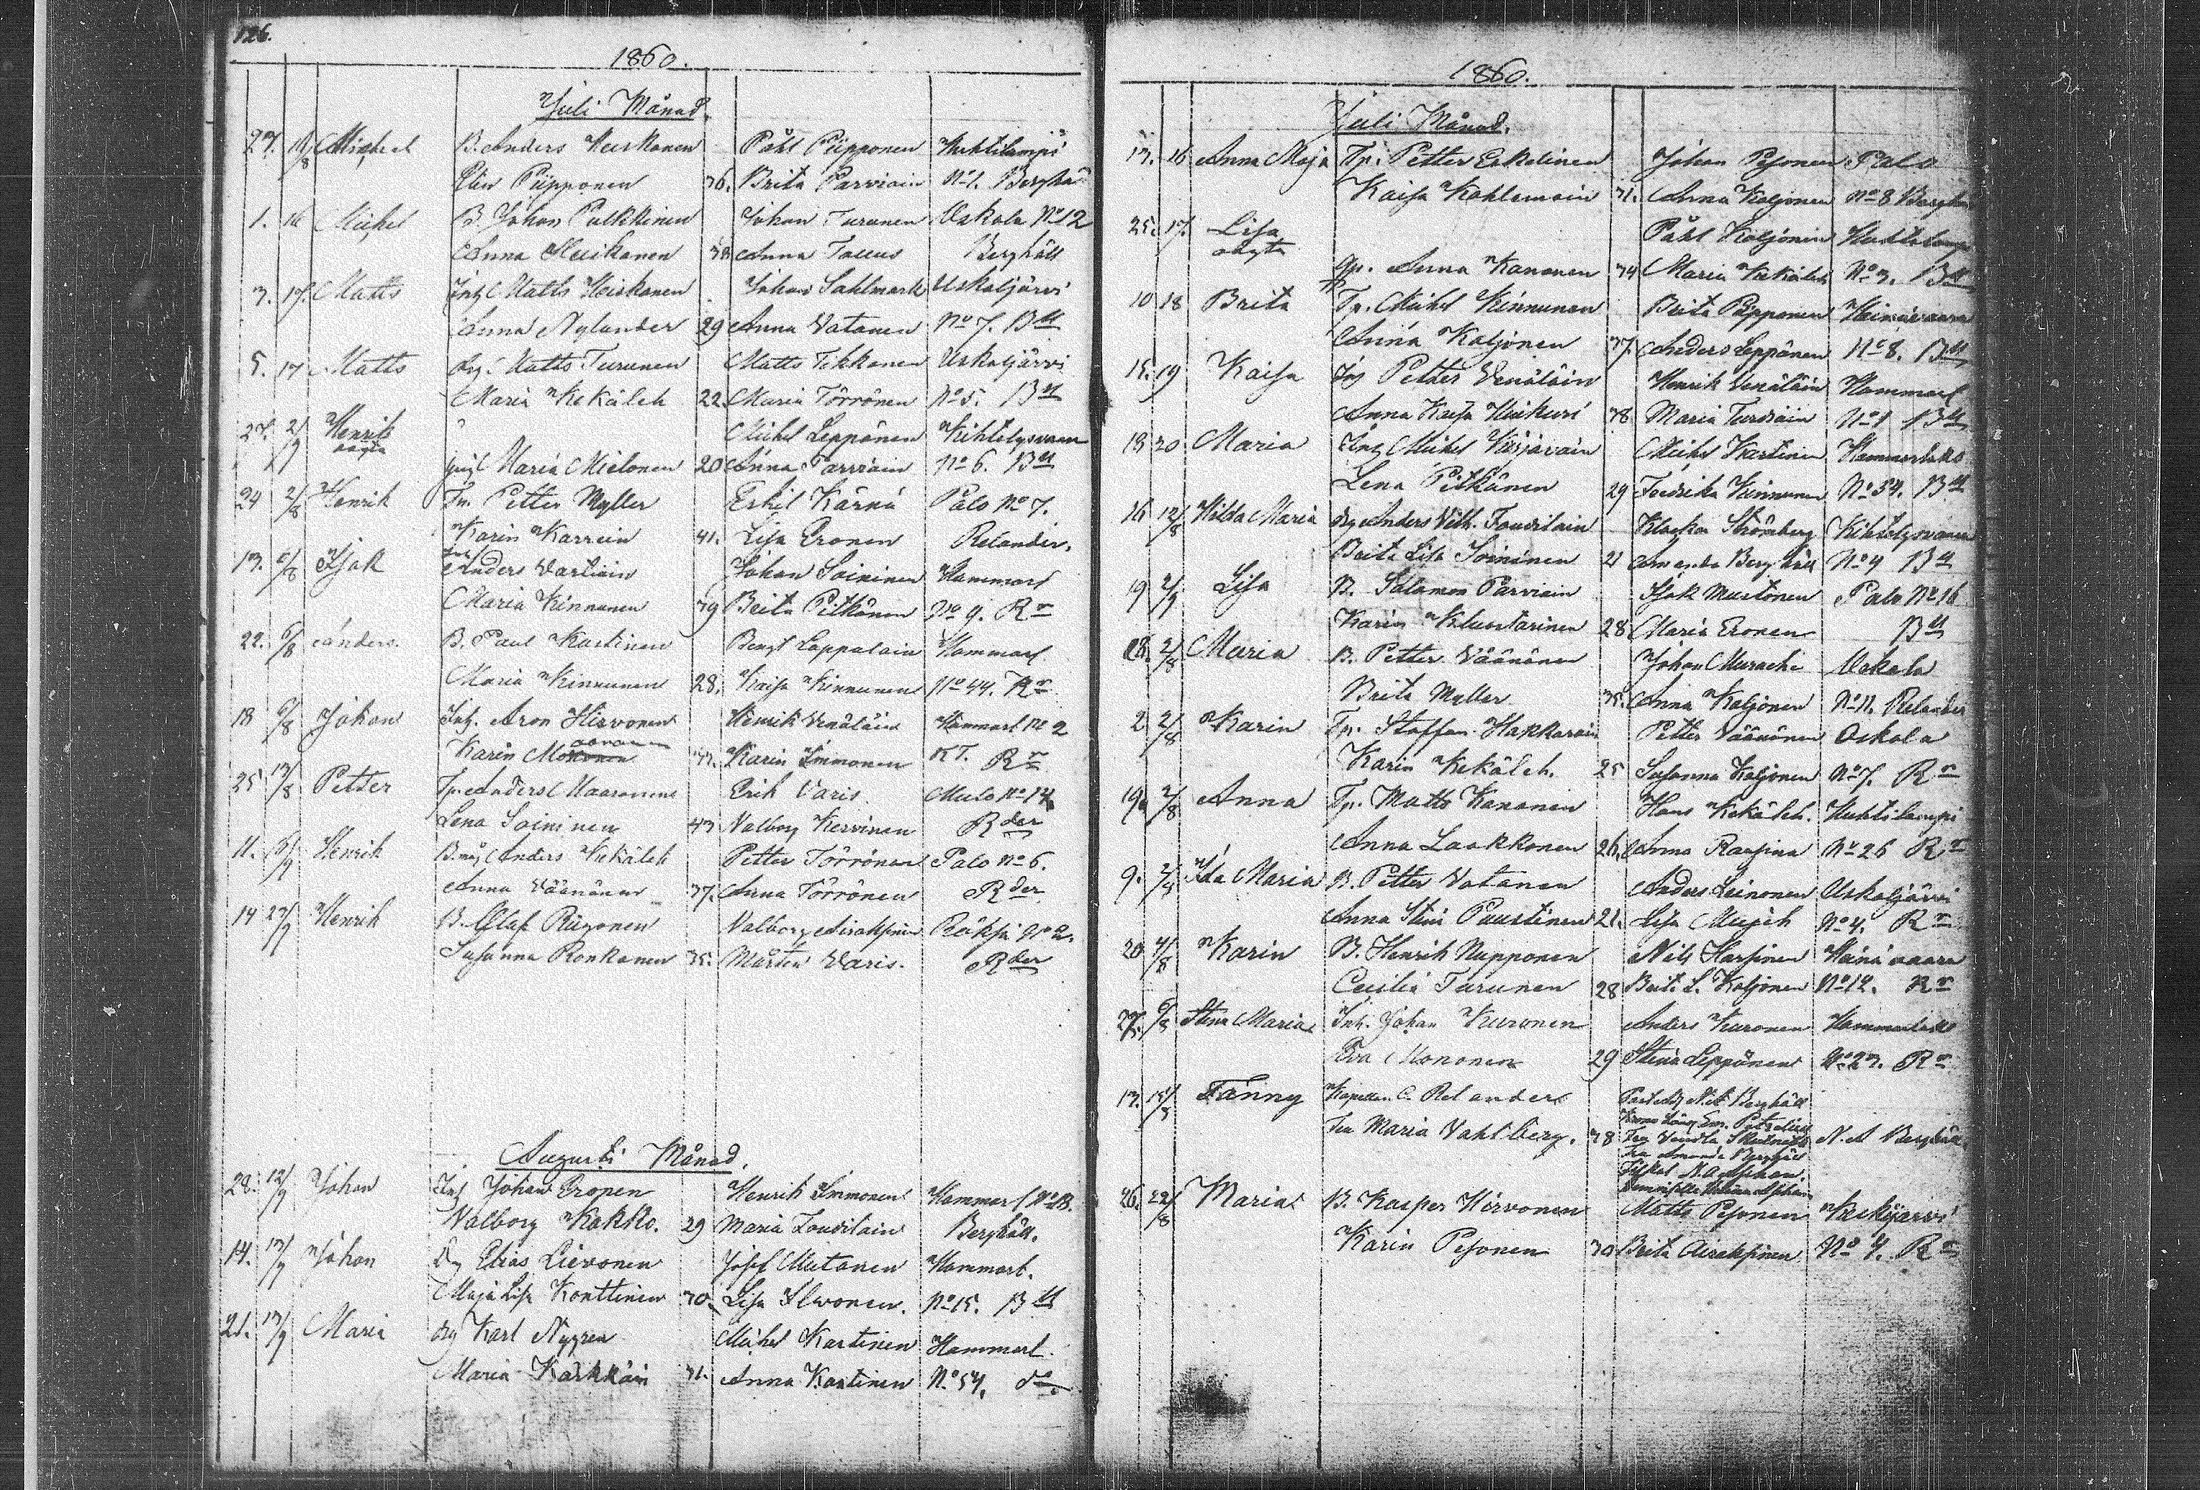 126.
1860.
Juli Månad.
27. Michel B. Anders Heiskanen Påhl Piipponen Huhtilampi
Elin Piipponen 36. Brita Parviain No 1. Berghä
1. 16 Michel B. Johan Pulkkinen Johan Turunen Uskola No 12
Anna Heiskanen 38 Anna Tallus Berghäll
3. 17. Matts Inh. Matts Heiskanen Johan Sahlmark Uskaljärvi
Anna Nylander 29 Anna Vatanen No 7. Bll
5. 17 Matts Dg. Matts Turunen Matts Tikkanen Uskaljärvi
Maria Kekäleh 22. Maria Törrönen No 5. Bll
27. 2/9 Henrik Michel Leppänen Kihtelysvaara
oägta
pig. Maria Mielonen 20 Anna Parviain No 6. Bll
24 2/8 Henrik Tm. Petter Myller Eskil Kärnä Palo No 7.
Karin Karvein 41. Lisa Eronen Relander.
13. 5/8 Isak Anders Vartiain Johan Soininen Hammarl
Maria Kinnunen 39 Brita Pitkänen No 9. Rr
22. 5/8 Anders. B. Paul Kartinen Bengt Lappalain Hammarl
Maria Kinnunen 28. Kaisa Kinnunen No 44. Rr
18 9/8 Johan Inh. Aron Hirvonen Henrik Venäläin Hammarl No 2
Karin 33. Karin Immonen KT. Rr
25 12/8 Petter Tp. Anders Maaranen Erik Varis. Mulo No 14
Lena Soininen 43 Valborg Kervinen Rder
11. Henrik B.måg Anders Kekäleh Petter Törrönen Palo No 6.
Anna Väänänen 37. Anna Törrönen Rder
14 Henrik B. Olof Piipponen Valborg Airaksinen Röksä No 2.
Susanna Ronkanen 35. Mårten Varis. Rder
Augusti Månad.
28. 12/9 Johan Inh Johan Eronen Henrik Immonen Hammarl No 13.
Valborg Kakko. 29 Maria Toudilain Berghäll.
14. Johan Dg Elias Lievonen Josef Mutanen Hammarl.
Maja Lisa Konttinen 30. Lisa Ilvonen. No 15. Bll
21. Maria Dg Karl Nygren Michel Kartinen Hammarl.
Maria Karkkäin 31. Anna Kartinen No 54. do.
1860.
Juli Månad.
13. 16 Anna Maja Tp. Petter Eskelinen Johan Pesonen Palo
Kaisa Kohlemain 31. Anna Koljonen No 8 Berghäll
25. 17. Lisa Påhl Koljonen Huhtilampi
oägta
Anna Kononen 34 Maria Kekäleh No 3. Bll
10 18 Brita Tp. Michel Kinnunen Brita Piipponen Heinävaara
Anna Koljonen 37. Anders Leppänen No 8. Bll
15. 19 Kaisa Inh Petter Venäläin Henrik Venäläin Hammarl
Anna Kaisa 38 Maria Turdiain No 1 Bll
13 20 Maria Inh Michel Michel Kartinen Hammarlaks
Lena Pitkänen 29 Fredrika Kinnunen No 34. Bll
16 12/8 Hilda Maria Dg Anders Vilh. Toudilain Klockar Strömberg Kihtelysvaara
Brita Lisa Soininen 21 Amanda Berghäll No 4 Bll
19 Lisa B. Salamon Parviain Isak Mustonen Palo No 16
Karin Kluostarinen 28 Maria Eronen Bll
28. 2/8 Maria B. Petter Väänänen Johan Murachi Uskola
Brita Myller 35. Anna Koljonen No 11. Relander
2. 2/8 Karin Tp. Staffan Hakkarain Petter Väänänen Oskola
Karin Kekäleh. 25 Susanna Koljonen No 7. Rr
19. 2/8 Anna Tp. Matts Kononen Hans Kekäleh. Huhtilampi
Anna Laakkonen 26. Anna No 26 Rr
9. Ida Maria B. Petter Vatanen Anders Leinonen Uskaljärvi
Anna Stina Puustinen 21. Lisa No 4. Rr
20 4/8 Karin B. Henrik Nupponen Nils Harsinen Heinävaara
Cecilia Turunen 28 Brit. L. Koljonen No 12. Rr
27. 5/8 Stina Maria Inh. Johan Kuronen Anders Kuronen Hammarlaks
Eva Mononen 29 Stina Leppänen No 23. Rr
13. Fanny Kapellan C. Relander N. A. Berghäll
Fru Maria Vahlberg. 38 N. A Berghäll
Fru Amanda Berghäll
26. 22/8 Maria B. Kasper Hirvonen Matts Pesonen Keskijärvi
Karin Pesonen 30 Brita Airaksinen No 4. Rr